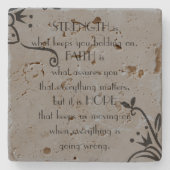 STRENGTH is
what keeps you holding on.
FAITH is
what assures you
that everything matters,
but it is HOPE
that keeps us moving on
when everything is
going wrong.